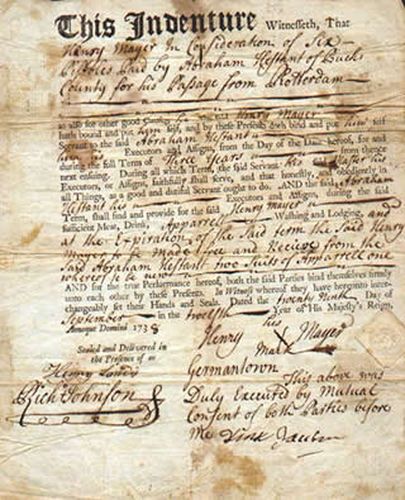 This Indenture Witnesseth, That
Henry Mayer In Consideration of Six
Pistoles Paid by Abraham Hestant of Bucks
County for his Passage from Rotterdam
as also for other good Causes he the said Henry Mayer
hath bound and put him self, and by these Presents doth bind and put him self
Servant to the said Abraham Hestant
Executors and Assigns, from the Day of the Date hereof, for and
during the full Term of Three Years from thence
next ensuing. During all which Term, the said Servant his said Master his
Executors, or Assigns, faithfully shall serve, and that honestly, and obediently in
all Things, as a good and dutiful Servant ought to do. AND the said Abraham
Hestant his Executors and Assigns, during the said
Term, shall find and provide for the said Henry Mayer
sufficient Meat, Drink, Apparrell Washing and Lodging, and
at the Expiration of the Said term the Said Henry
Mayer to be made free and Recieve from the
Said Abraham Hestant two Suits of Apparrell one
whereof is to be new
AND for the true Performance hereof, both the said Parties bind themselves firmly
unto each other by these Presents. In Witness whereof they have hereunto inter-
changeably set their Hands and Seals. Dated the twenty Ninth Day of
September in the twelfth Year of His Majesty's Reign,
Annoque Domini 1738
his
Henry X Mayer
Mark
Sealed and Delivered in
the Presence of us
Richd Johnson
Germantown
This above was
Duly Executed by Mutual
Consent of both Parties before
me